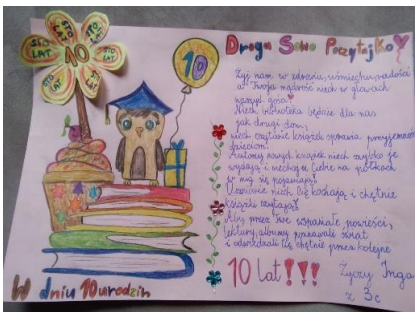 STO LAT
STO LAT
STO LAT
STO LAT
10
10
Droga Sowo Poczytajko
Żyj nam w zdrowiu, uśmiechu, radości
a Twoja mądrość niech w głowach
naszych gości.
Niech biblioteka będzie dla nas
jak drugi dom,
niech czytanie książek sprawia przyjemność
dzieciom!
Autorzy nowych książek niech szybko je
wydają i niechaj u Ciebie na półkach
się pojawiają.
Uczniowie niech Cię kochają i chętnie
książki czytają!
Aby przez Twe wspaniałe powieści,
lektury, albumy poznawali świat
i odwiedzali Cię chętnie przez kolejne
10 lat!!!
Życzy Inga
z 3c
W dniu 10 urodzin